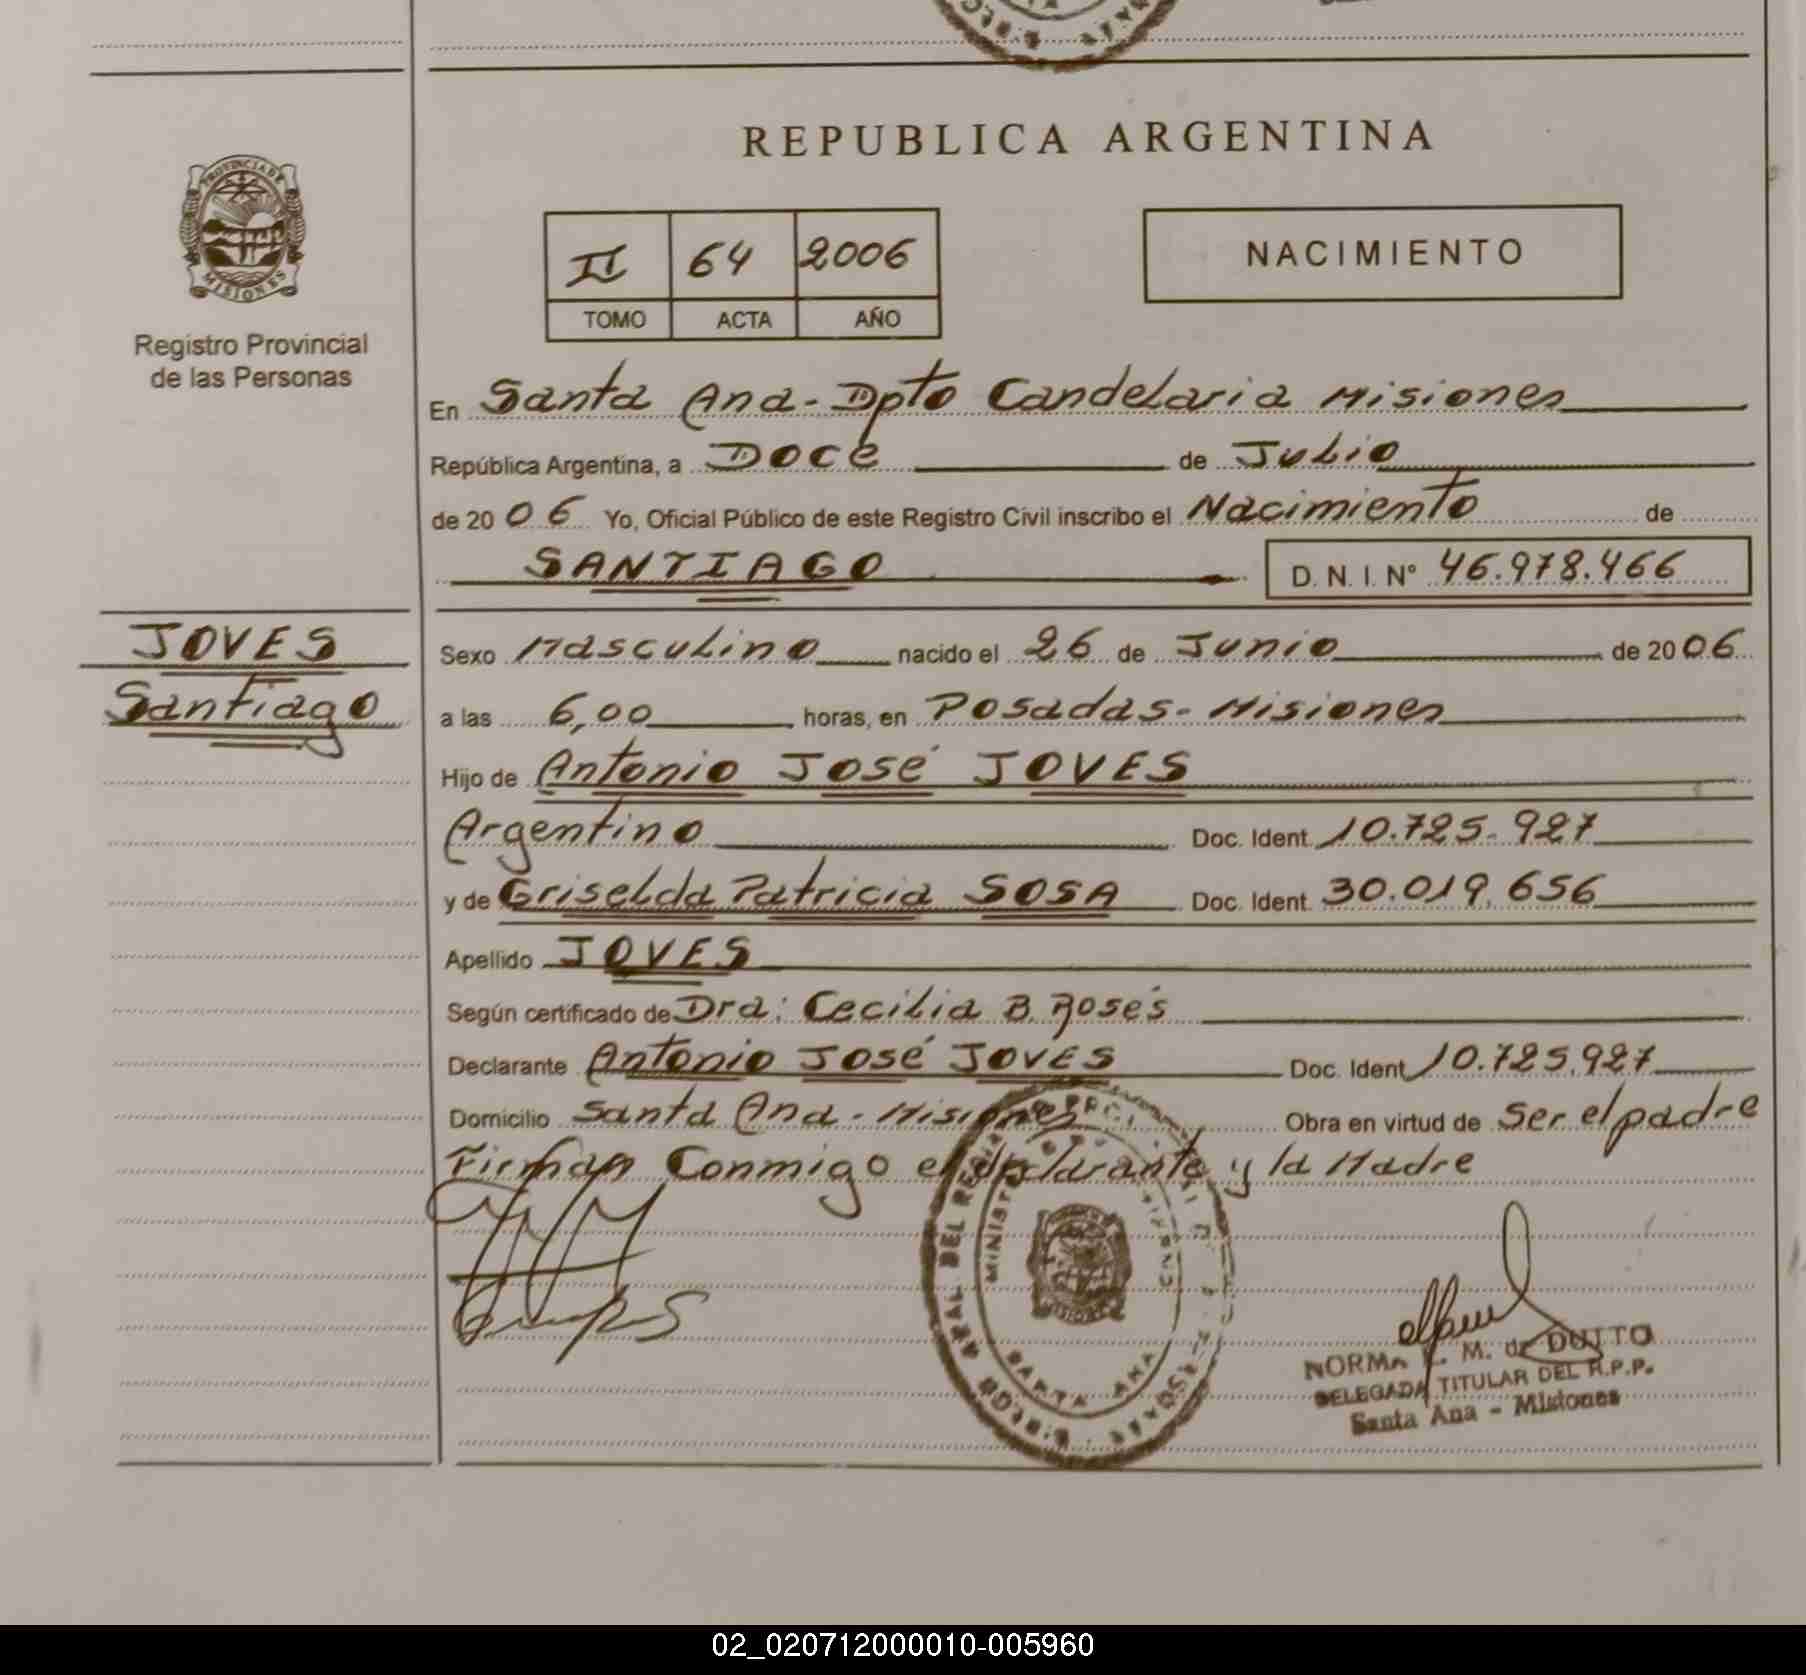 REPUBLICA ARGENTINA
PROVINCIA DE
MISIONES
Registro Provincial
de las Personas
II 64 2006
TOMO ACTA AÑO
NACIMIENTO
En Santa Ana - Dpto Candelaria Misiones
República Argentina, a Doce de Julio
de 2006 Yo, Oficial Público de este Registro Civil inscribo el Nacimiento de
SANTIAGO D. N. I. Nº 46.978.466
JOVES
Santiago
Sexo Masculino nacido el 26 de Junio de 2006
a las 6,00 horas, en Posadas - Misiones
Hijo de Antonio José JOVES
Argentino Doc. Ident. 10.725.927
y de Griselda Patricia SOSA Doc. Ident. 30.019.656
Apellido JOVES
Según certificado de Dra: Cecilia B. Rosés
Declarante Antonio José JOVES Doc. Ident 10.725.927
Domicilio Santa Ana - Misiones Obra en virtud de Ser el padre
Firman Conmigo el declarante y la Madre
SANTA ANA
NORMA M. de DUTTO
DELEGADA TITULAR DEL R.P.P.
Santa Ana - Misiones
02_020712000010-005960